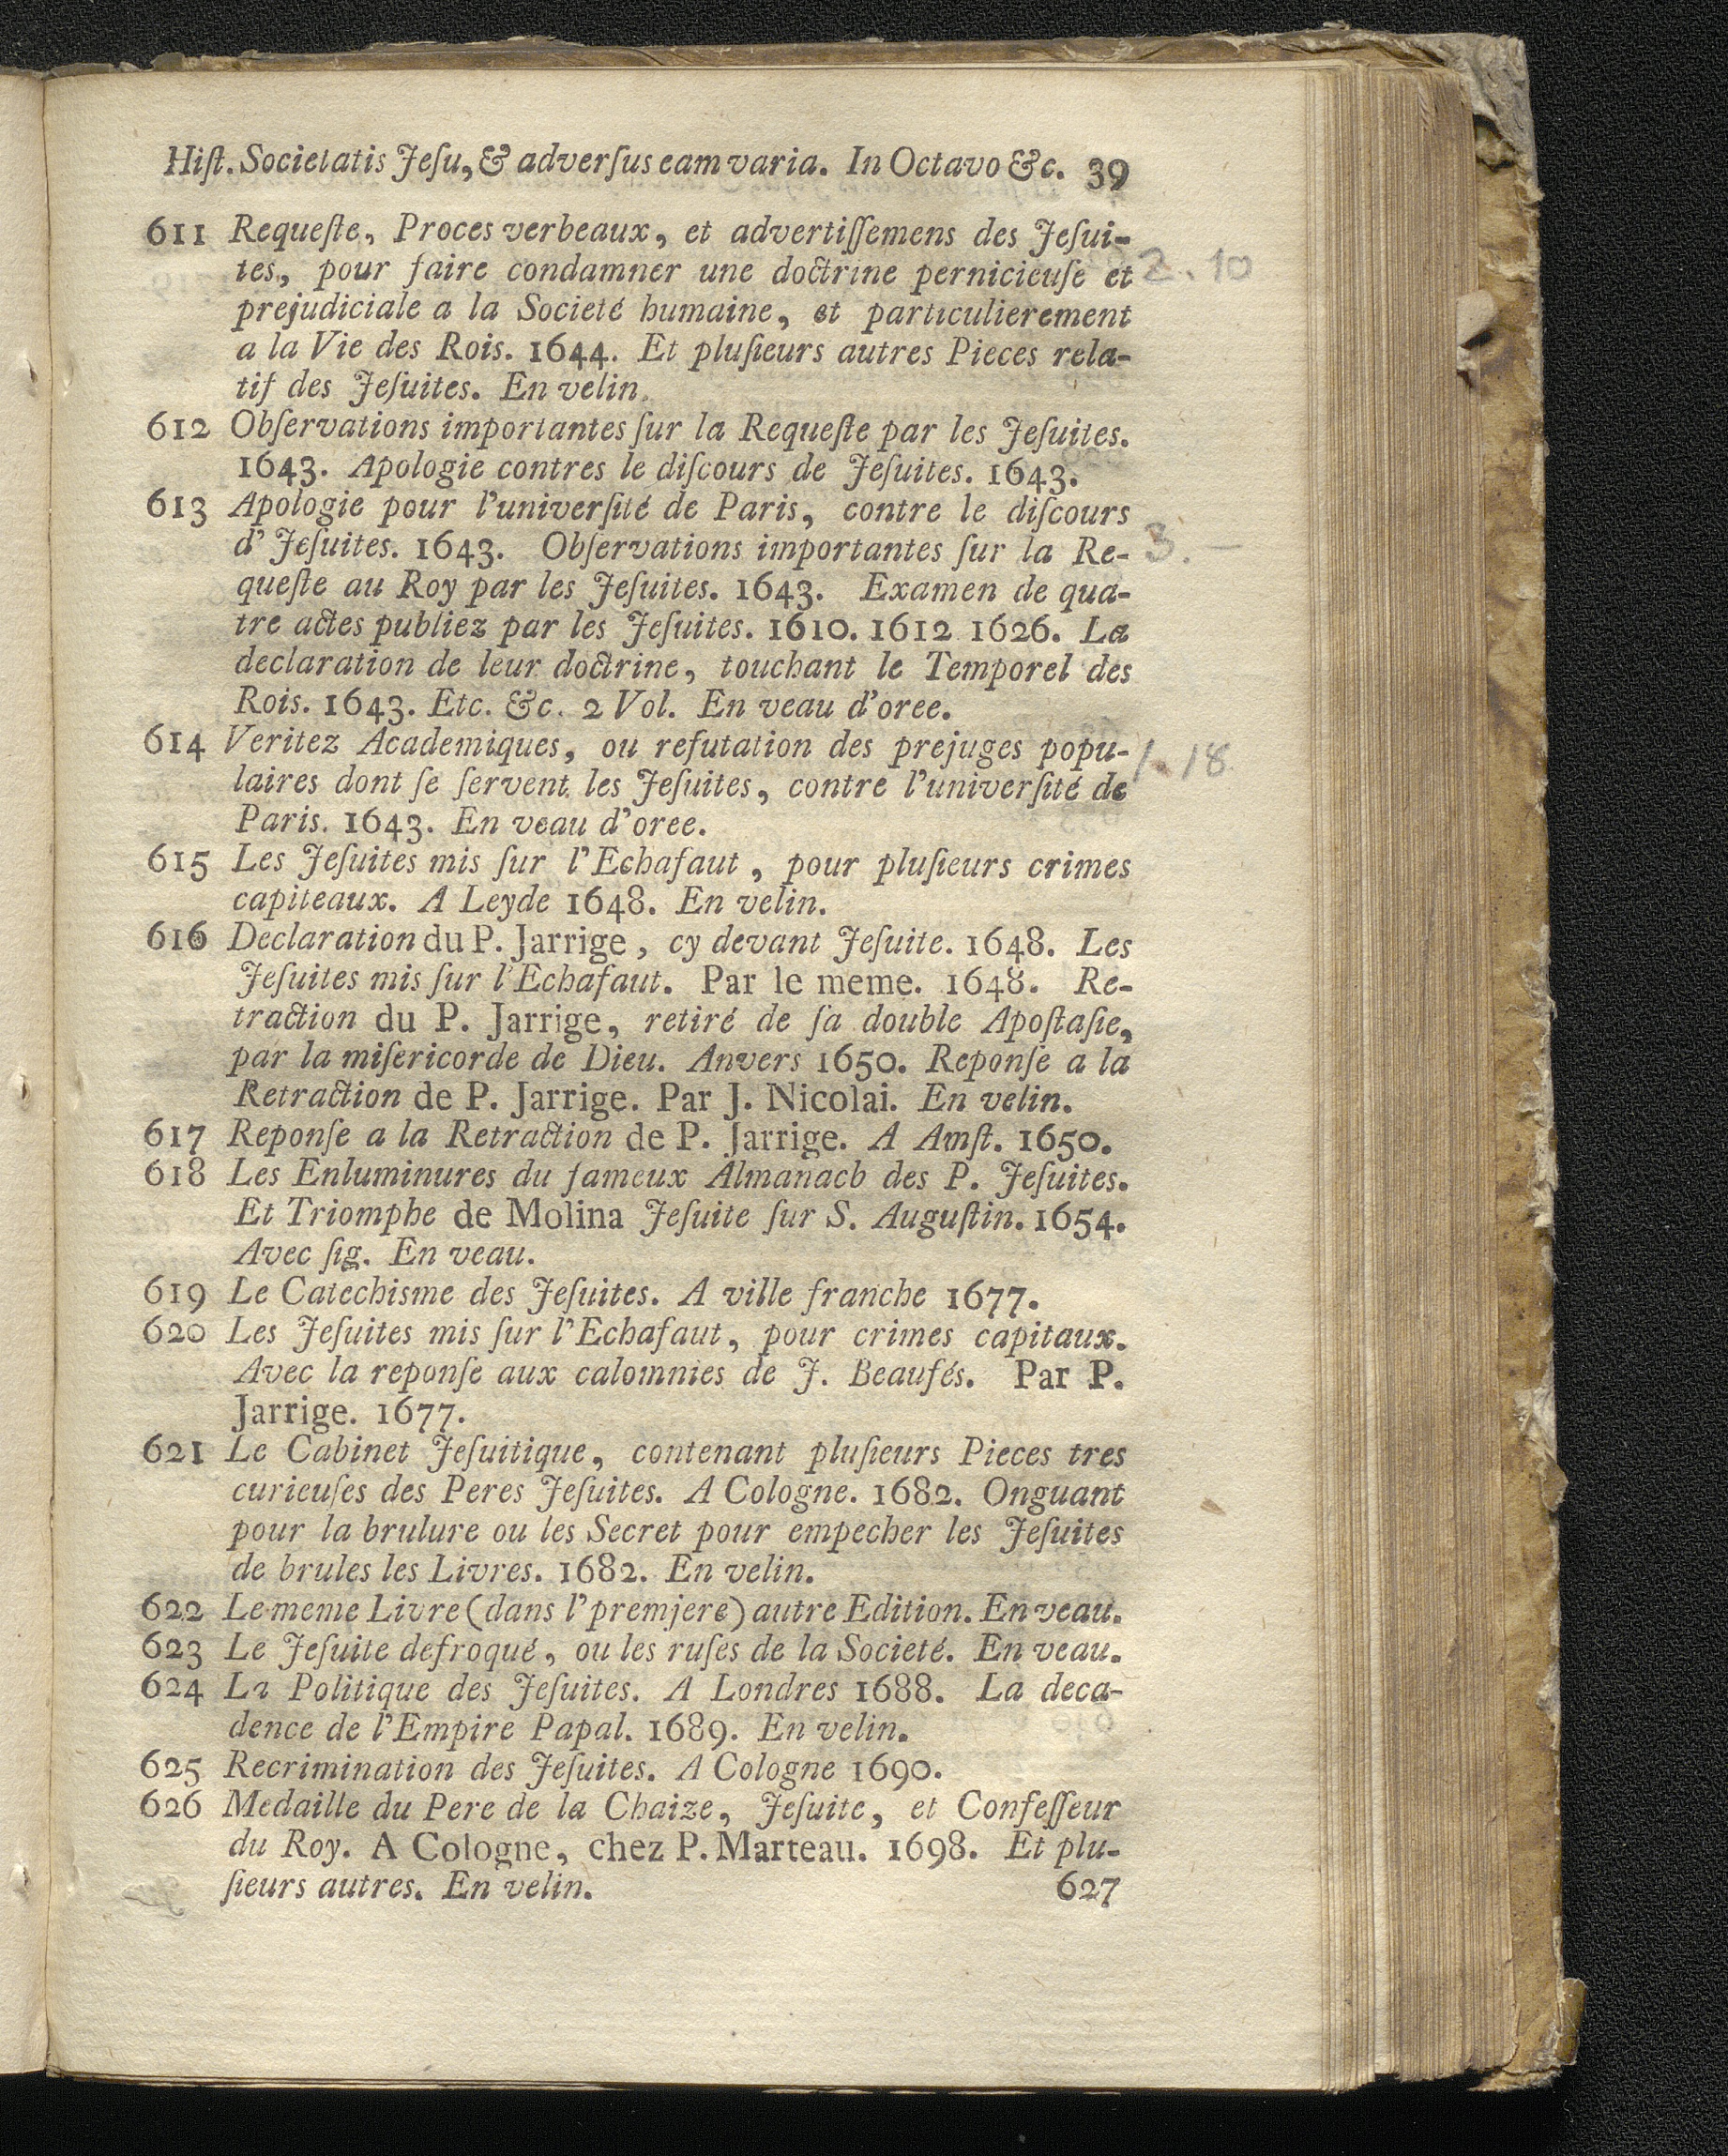 Hiſt. Societatis Jeſu, & adverſus eam varia. In Octavo &c. 39
611 Requeſte, Proces verbeaux, et advertiſſemens des Jeſui-
tes, pour faire condamner une doctrine pernicieuſe et 2. 10
prejudiciale a la Societé humaine, et particulierement
a la Vie des Rois. 1644. Et pluſieurs autres Pieces rela-
tif des Jeſuites. En velin.
612 Obſervations importantes ſur la Requeſte par les Jeſuites.
1643. Apologie contres le diſcours de Jeſuites. 1643.
613 Apologie pour l'univerſité de Paris, contre le diſcours
d'Jeſuites. 1643. Obſervations importantes ſur la Re- 3. –
queſte au Roy par les Jeſuites. 1643. Examen de qua-
tre actes publiez par les Jeſuites. 1610. 1612 1626. La
declaration de leur doctrine, touchant le Temporel des
Rois. 1643. Etc. &c. 2 Vol. En veau d'oree.
614 Veritez Academiques, ou refutation des prejuges popu-
laires dont ſe ſervent les Jeſuites, contre l'univerſité de 1. 18
Paris. 1643. En veau d'oree.
615 Les Jeſuites mis ſur l'Echafaut, pour pluſieurs crimes
capiteaux. A Leyde 1648. En velin.
616 Declaration du P. Jarrige, cy devant Jeſuite. 1648. Les
Jeſuites mis ſur l'Echafaut. Par le meme. 1648. Re-
traction du P. Jarrige, retiré de ſa double Apoſtaſie,
par la miſericorde de Dieu. Anvers 1650. Reponſe a la
Retraction de P. Jarrige. Par J. Nicolai. En velin.
617 Reponſe a la Retraction de P. Jarrige. A Amſt. 1650.
618 Les Enluminures du fameux Almanach des P. Jeſuites.
Et Triomphe de Molina Jeſuite ſur S. Auguſtin. 1654.
Avec fig. En veau.
619 Le Catechisme des Jeſuites. A ville franche 1677.
620 Les Jeſuites mis ſur l'Echafaut, pour crimes capitaux.
Avec la reponſe aux calomnies de J. Beaufés. Par P.
Jarrige. 1677.
621 Le Cabinet Jeſuitique, contenant pluſieurs Pieces tres
curieuſes des Peres Jeſuites. A Cologne. 1682. Onguant
pour la brulure ou les Secret pour empecher les Jeſuites
de brules les Livres. 1682. En velin.
622 Le meme Livre (dans l'premjere) autre Edition. En veau.
623 Le Jeſuite defroqué, ou les ruſes de la Societé. En veau.
624 La Politique des Jeſuites. A Londres 1688. La deca-
dence de l'Empire Papal. 1689. En velin.
625 Recrimination des Jeſuites. A Cologne 1690.
626 Medaille du Pere de la Chaize, Jeſuite, et Confeſſeur
du Roy. A Cologne, chez P. Marteau. 1698. Et plu-
ſieurs autres. En velin. 627